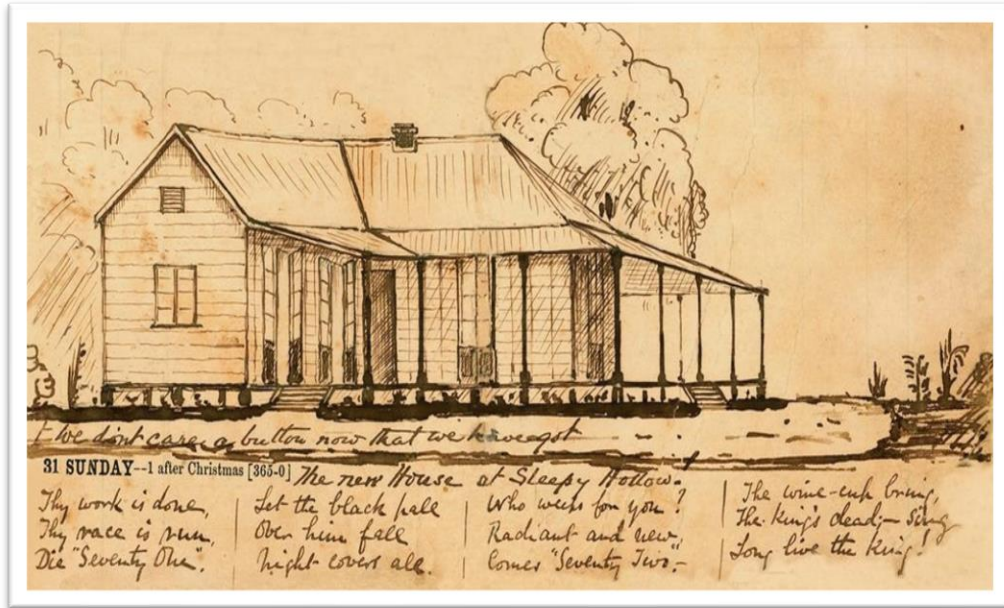 & we don't care a button now that we have got
31 SUNDAY--1 after Christmas [365-0]
The new House at Sleepy Hollow.
Thy work is done,
Thy race is run,
Die "Seventy One".
Let the black pall
Over him fall
Night covers all.
Who weeps for you?
Radiant and new,
Comes "Seventy Two".-
The wine-cup bring,
The King's dead;- Sing
Long live the King!